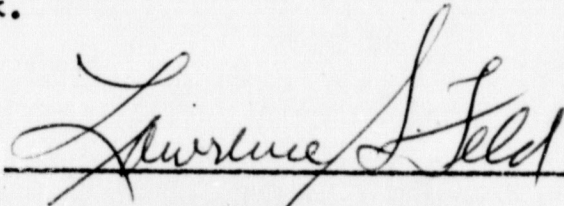 .
Lawrence S. Feld